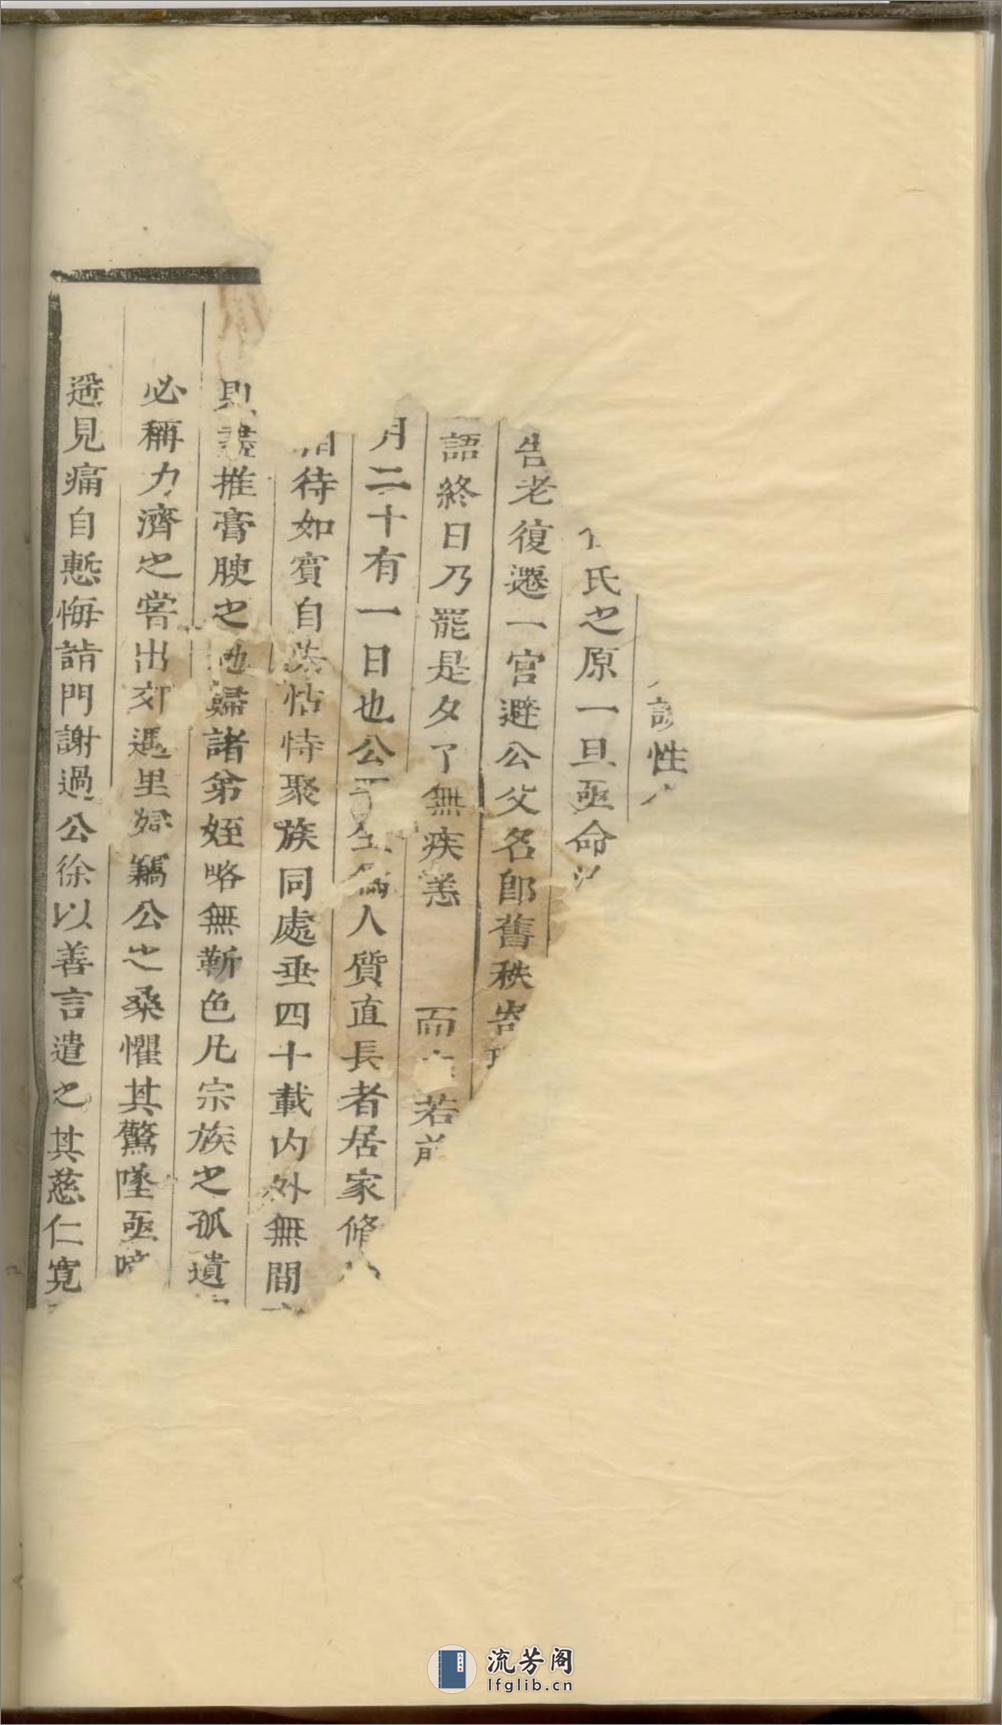 性
氏之原一旦亟命
告老復遷一官避公父名郎舊秩
語終日乃罷是夕了無疾恙而若前
月二十有一日也公人質直長者居家脩
待如賓自怙恃聚族同處垂四十載内外無間
則推膏腴之歸諸弟姪略無靳色凡宗族之孤遺
必稱力濟之嘗出郊遇里婦竊公之桑懼其驚墜亟
遥見痛自慙悔請門謝過公徐以善言遣之其慈仁寛
流芳阁
lfglib.cn